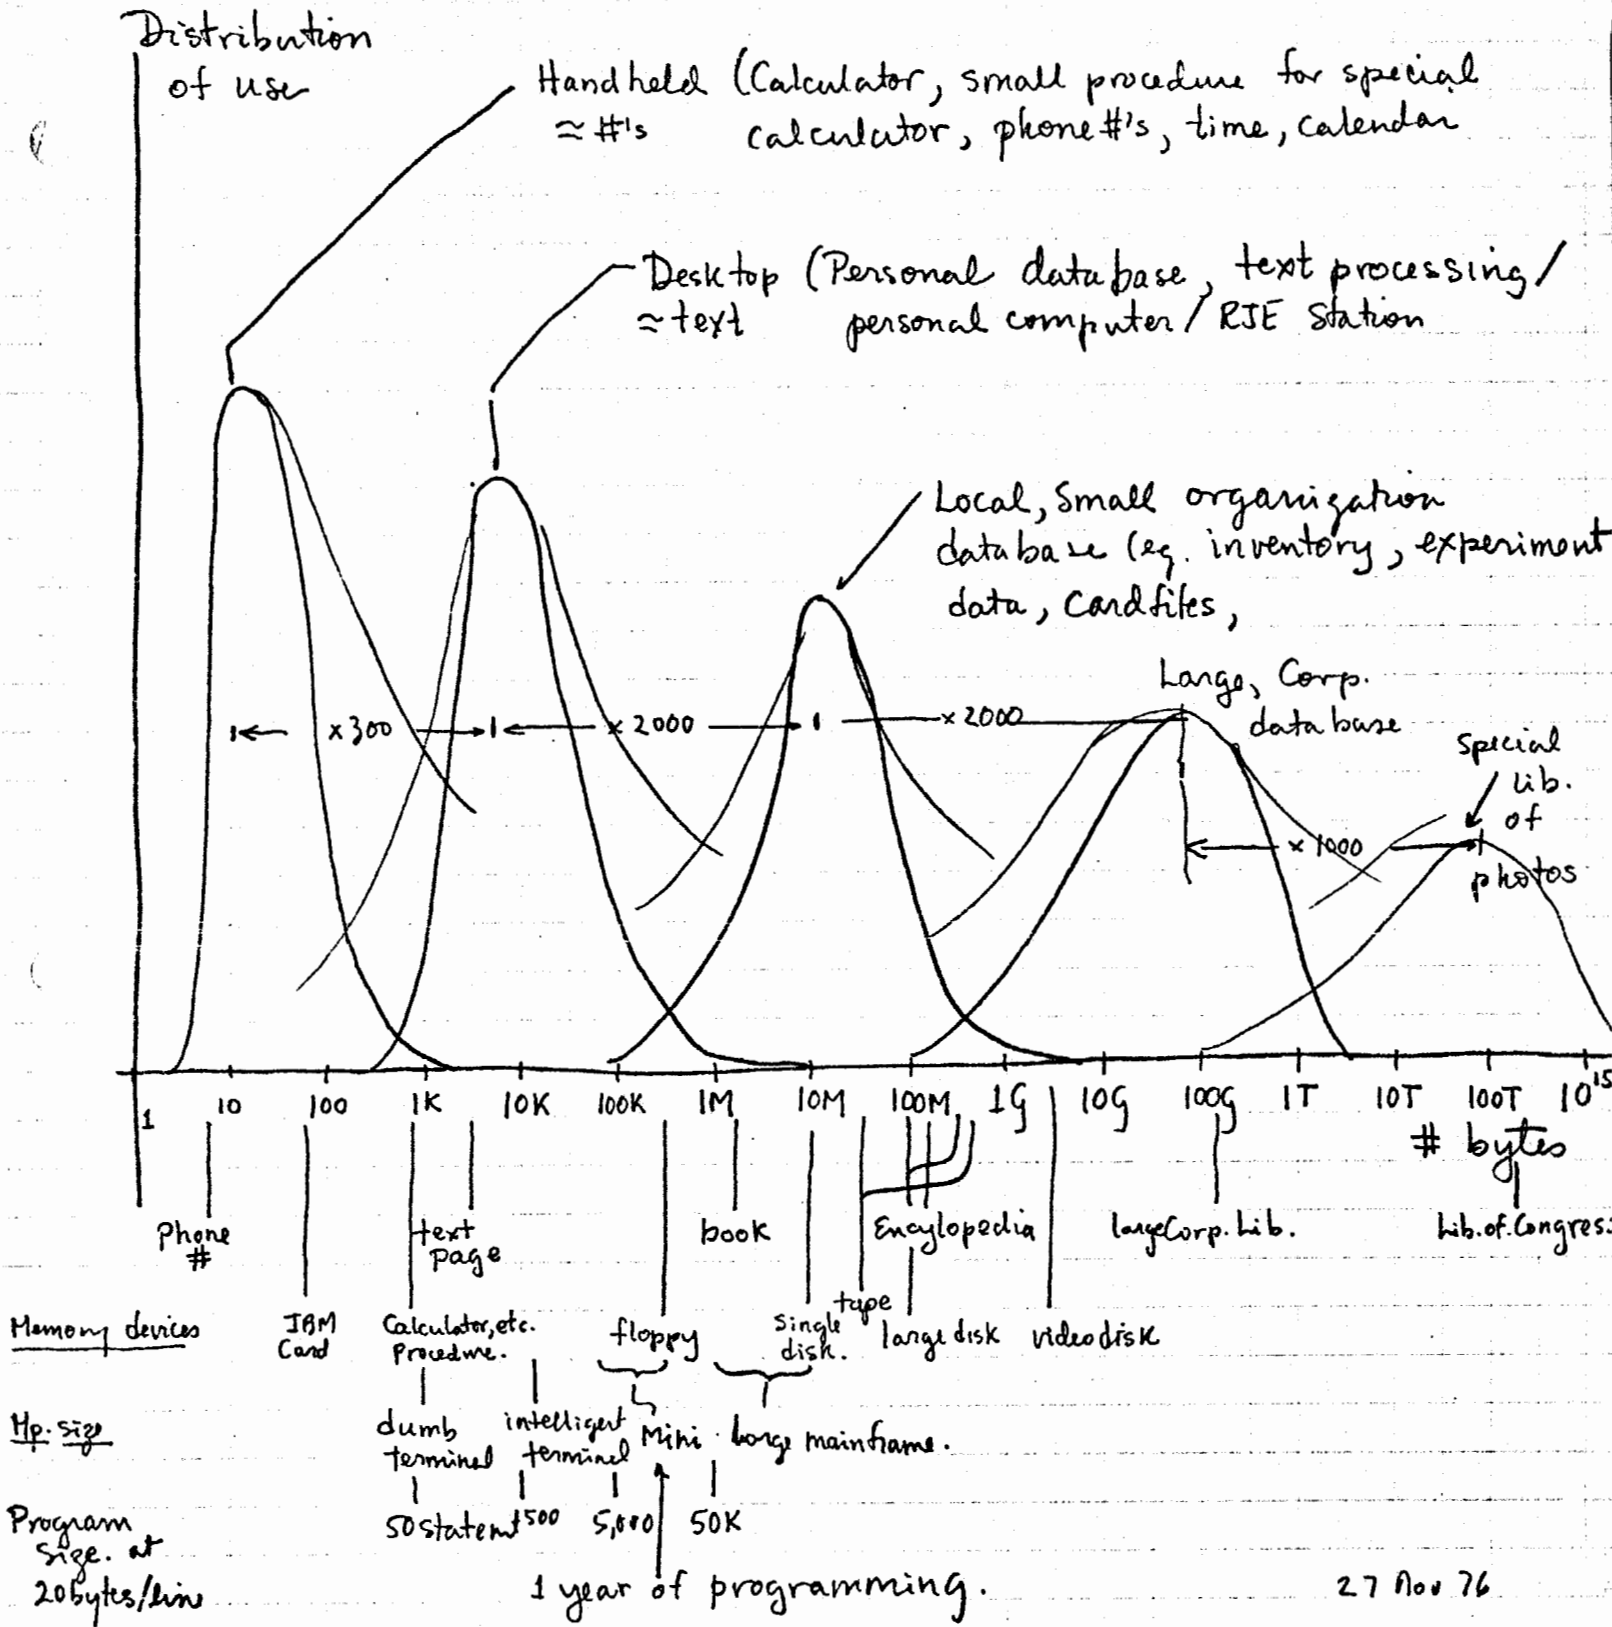 Distribution
of use
Handheld (Calculator, small procedure for special
≈ #'s calculator, phone #'s, time, calendar
Desktop (Personal database, text processing/
≈ text personal computer / RJE Station
Local, Small organization
database (eg. inventory, experiment
data, Cardfiles,
Large, Corp.
database
special
lib.
of
photos
x300
x 2000
x 2000
x 1000
1 10 100 1K 10K 100K 1M 10M 100M 1G 10G 100G 1T 10T 100T 10^15
# bytes
Phone
#
text
page
book
Encylopedia
large Corp. Lib.
Lib. of. Congres.
Memory devices
IBM
Card
Calculator, etc.
Procedure.
floppy
single
disk.
tape
large disk
videodisk
Mp. size
dumb
terminal
intelligent
terminal
Mini
Large mainframe.
Program
Size. at
20 bytes/line
50 statemt
500
5,000
50K
1 year of programming.
27 Nov 76